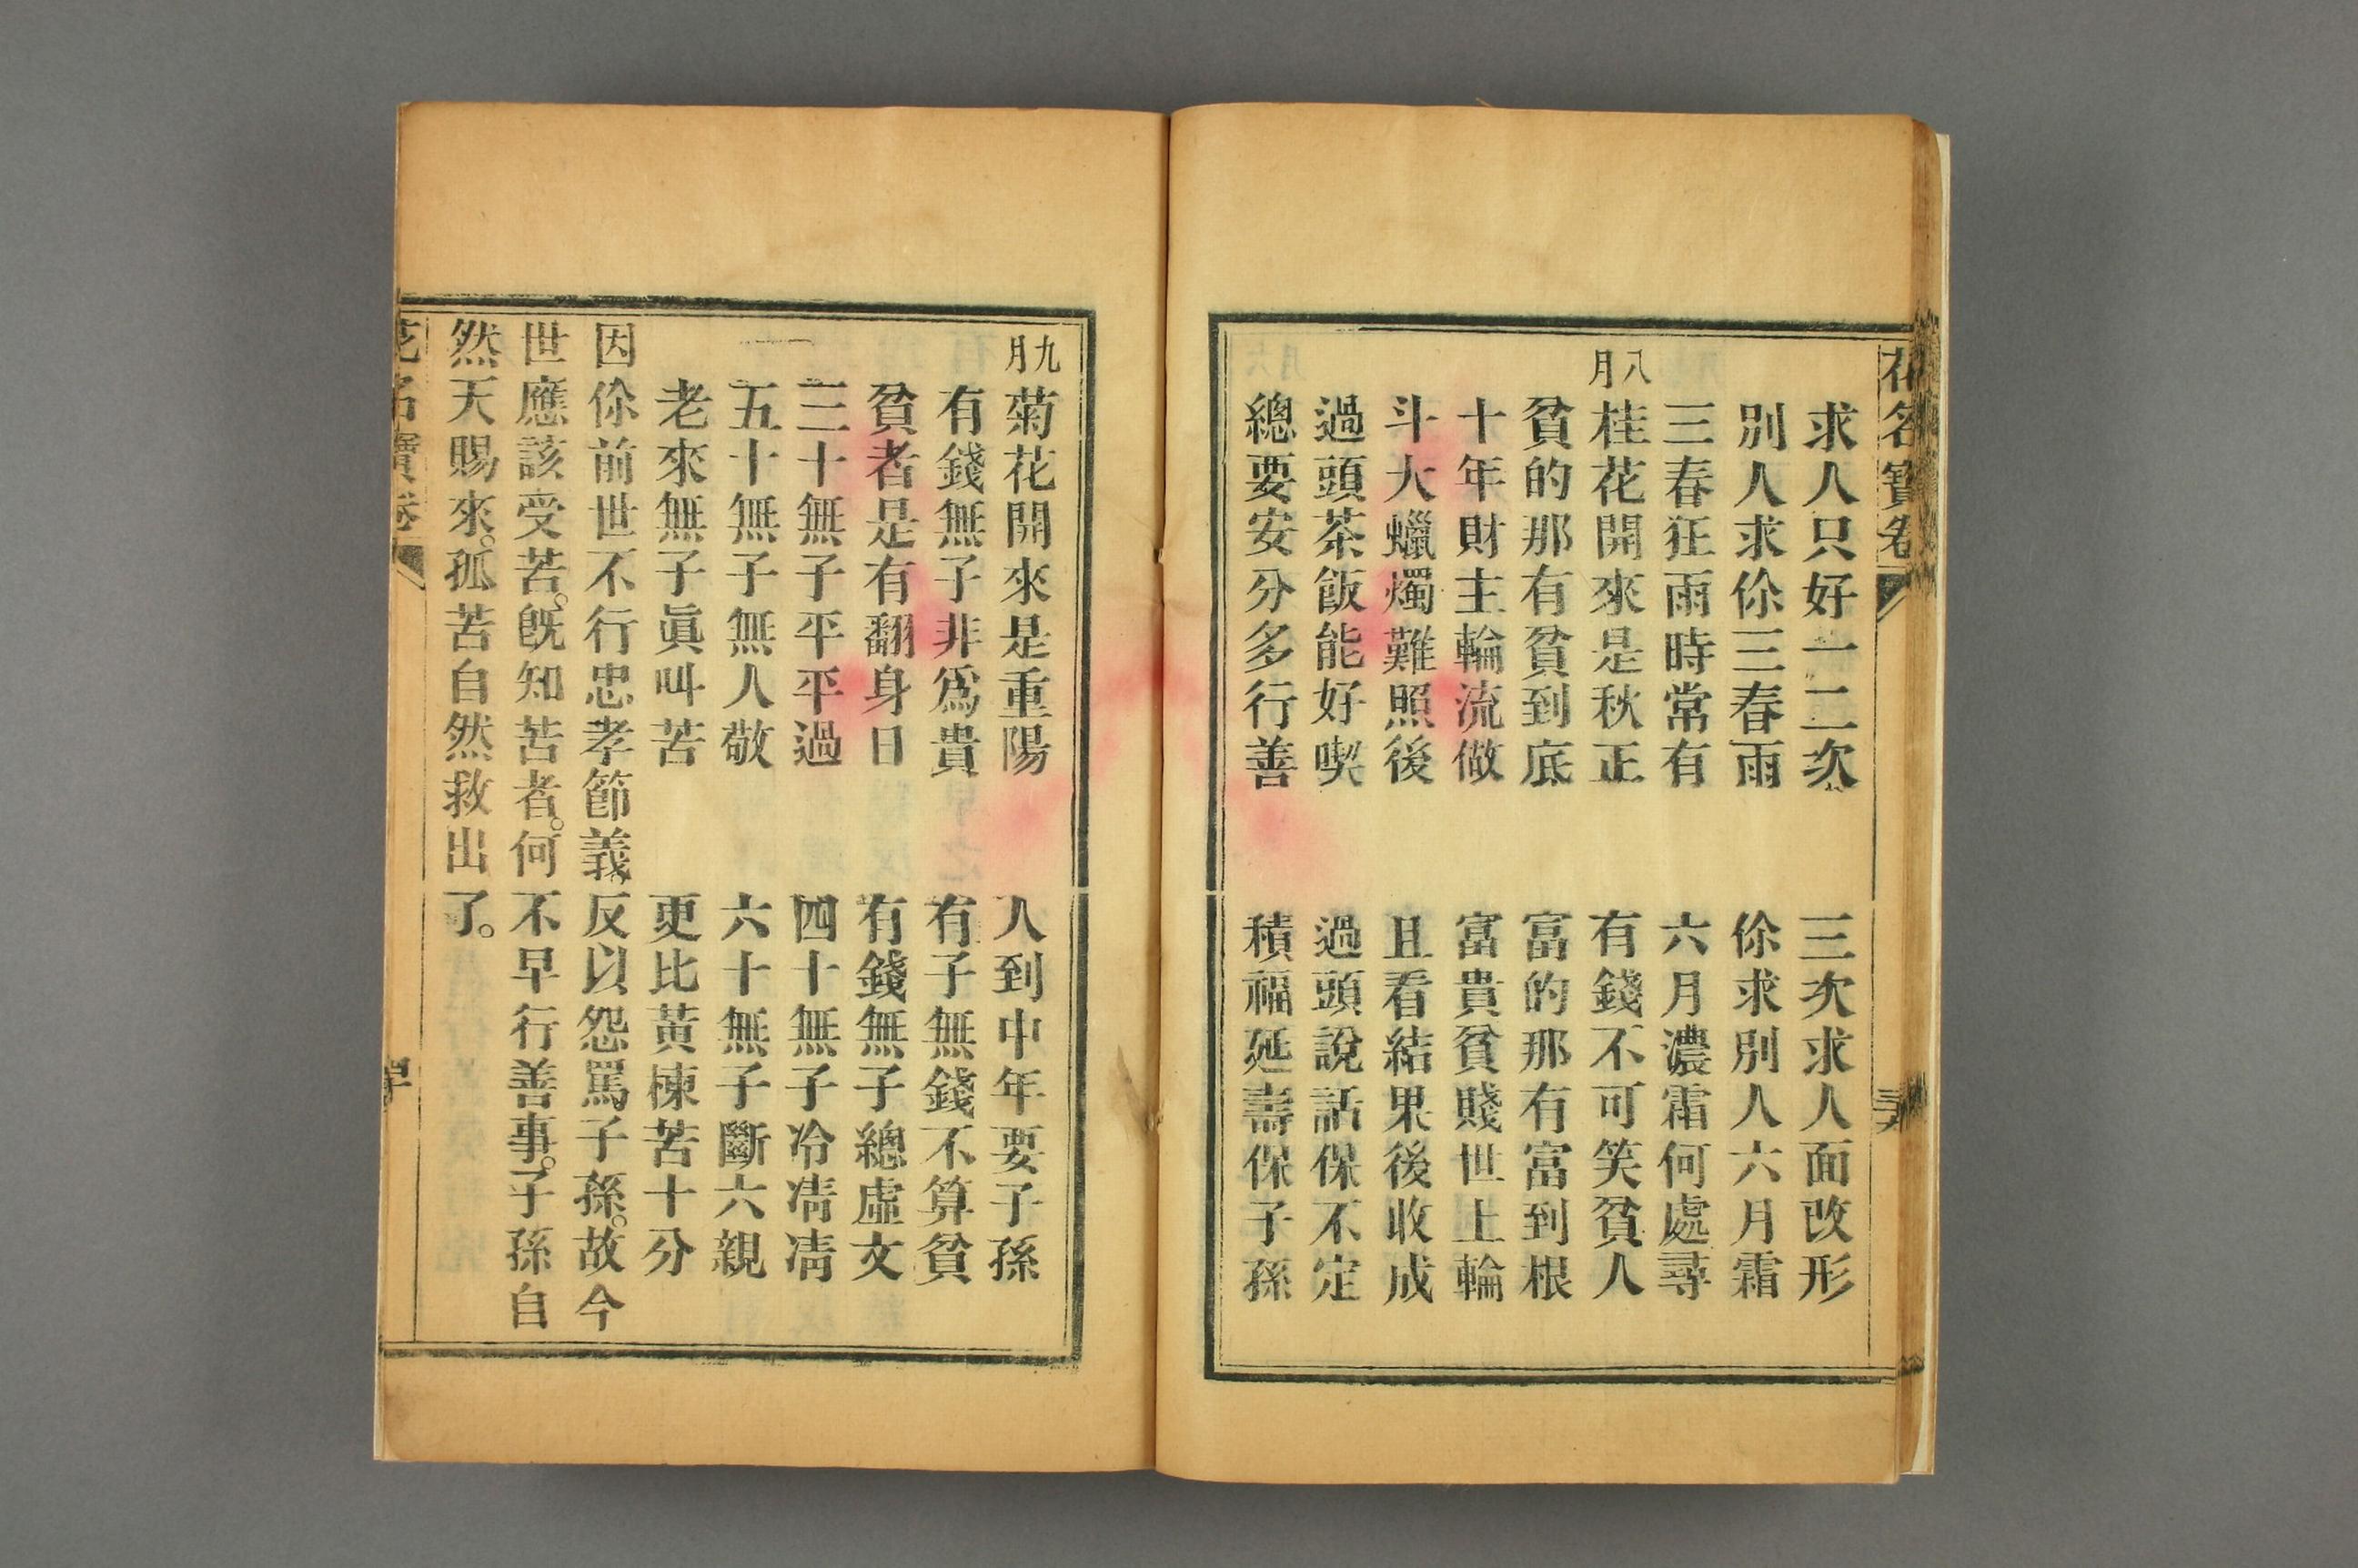 花名寶卷
求人只好一二次　三次求人面改形
別人求伱三春雨　伱求別人六月霜
三春狂雨時常有　六月濃霜何處尋
八月　桂花開來是秋正　有錢不可笑貧人
貧的那有貧到底　富的那有富到根
十年財主輪流做　富貴貧賤世上輪
斗大蠟燭難照後　且看結果後收成
過頭茶飯能好喫　過頭說話保不定
總要安分多行善　積福延壽保子孫
九月　菊花開來是重陽　人到中年要子孫
有錢無子非爲貴　有子無錢不算貧
貧者是有翻身日　有錢無子總虛文
三十無子平平過　四十無子冷凊凊
五十無子無人敬　六十無子斷六親
老來無子眞叫苦　更比黃楝苦十分
因伱前世不行忠孝節義。反以怨罵子孫。故今
世應該受苦。旣知苦者。何不早行善事。子孫自
然天賜來。孤苦自然救出了。
花名寶卷